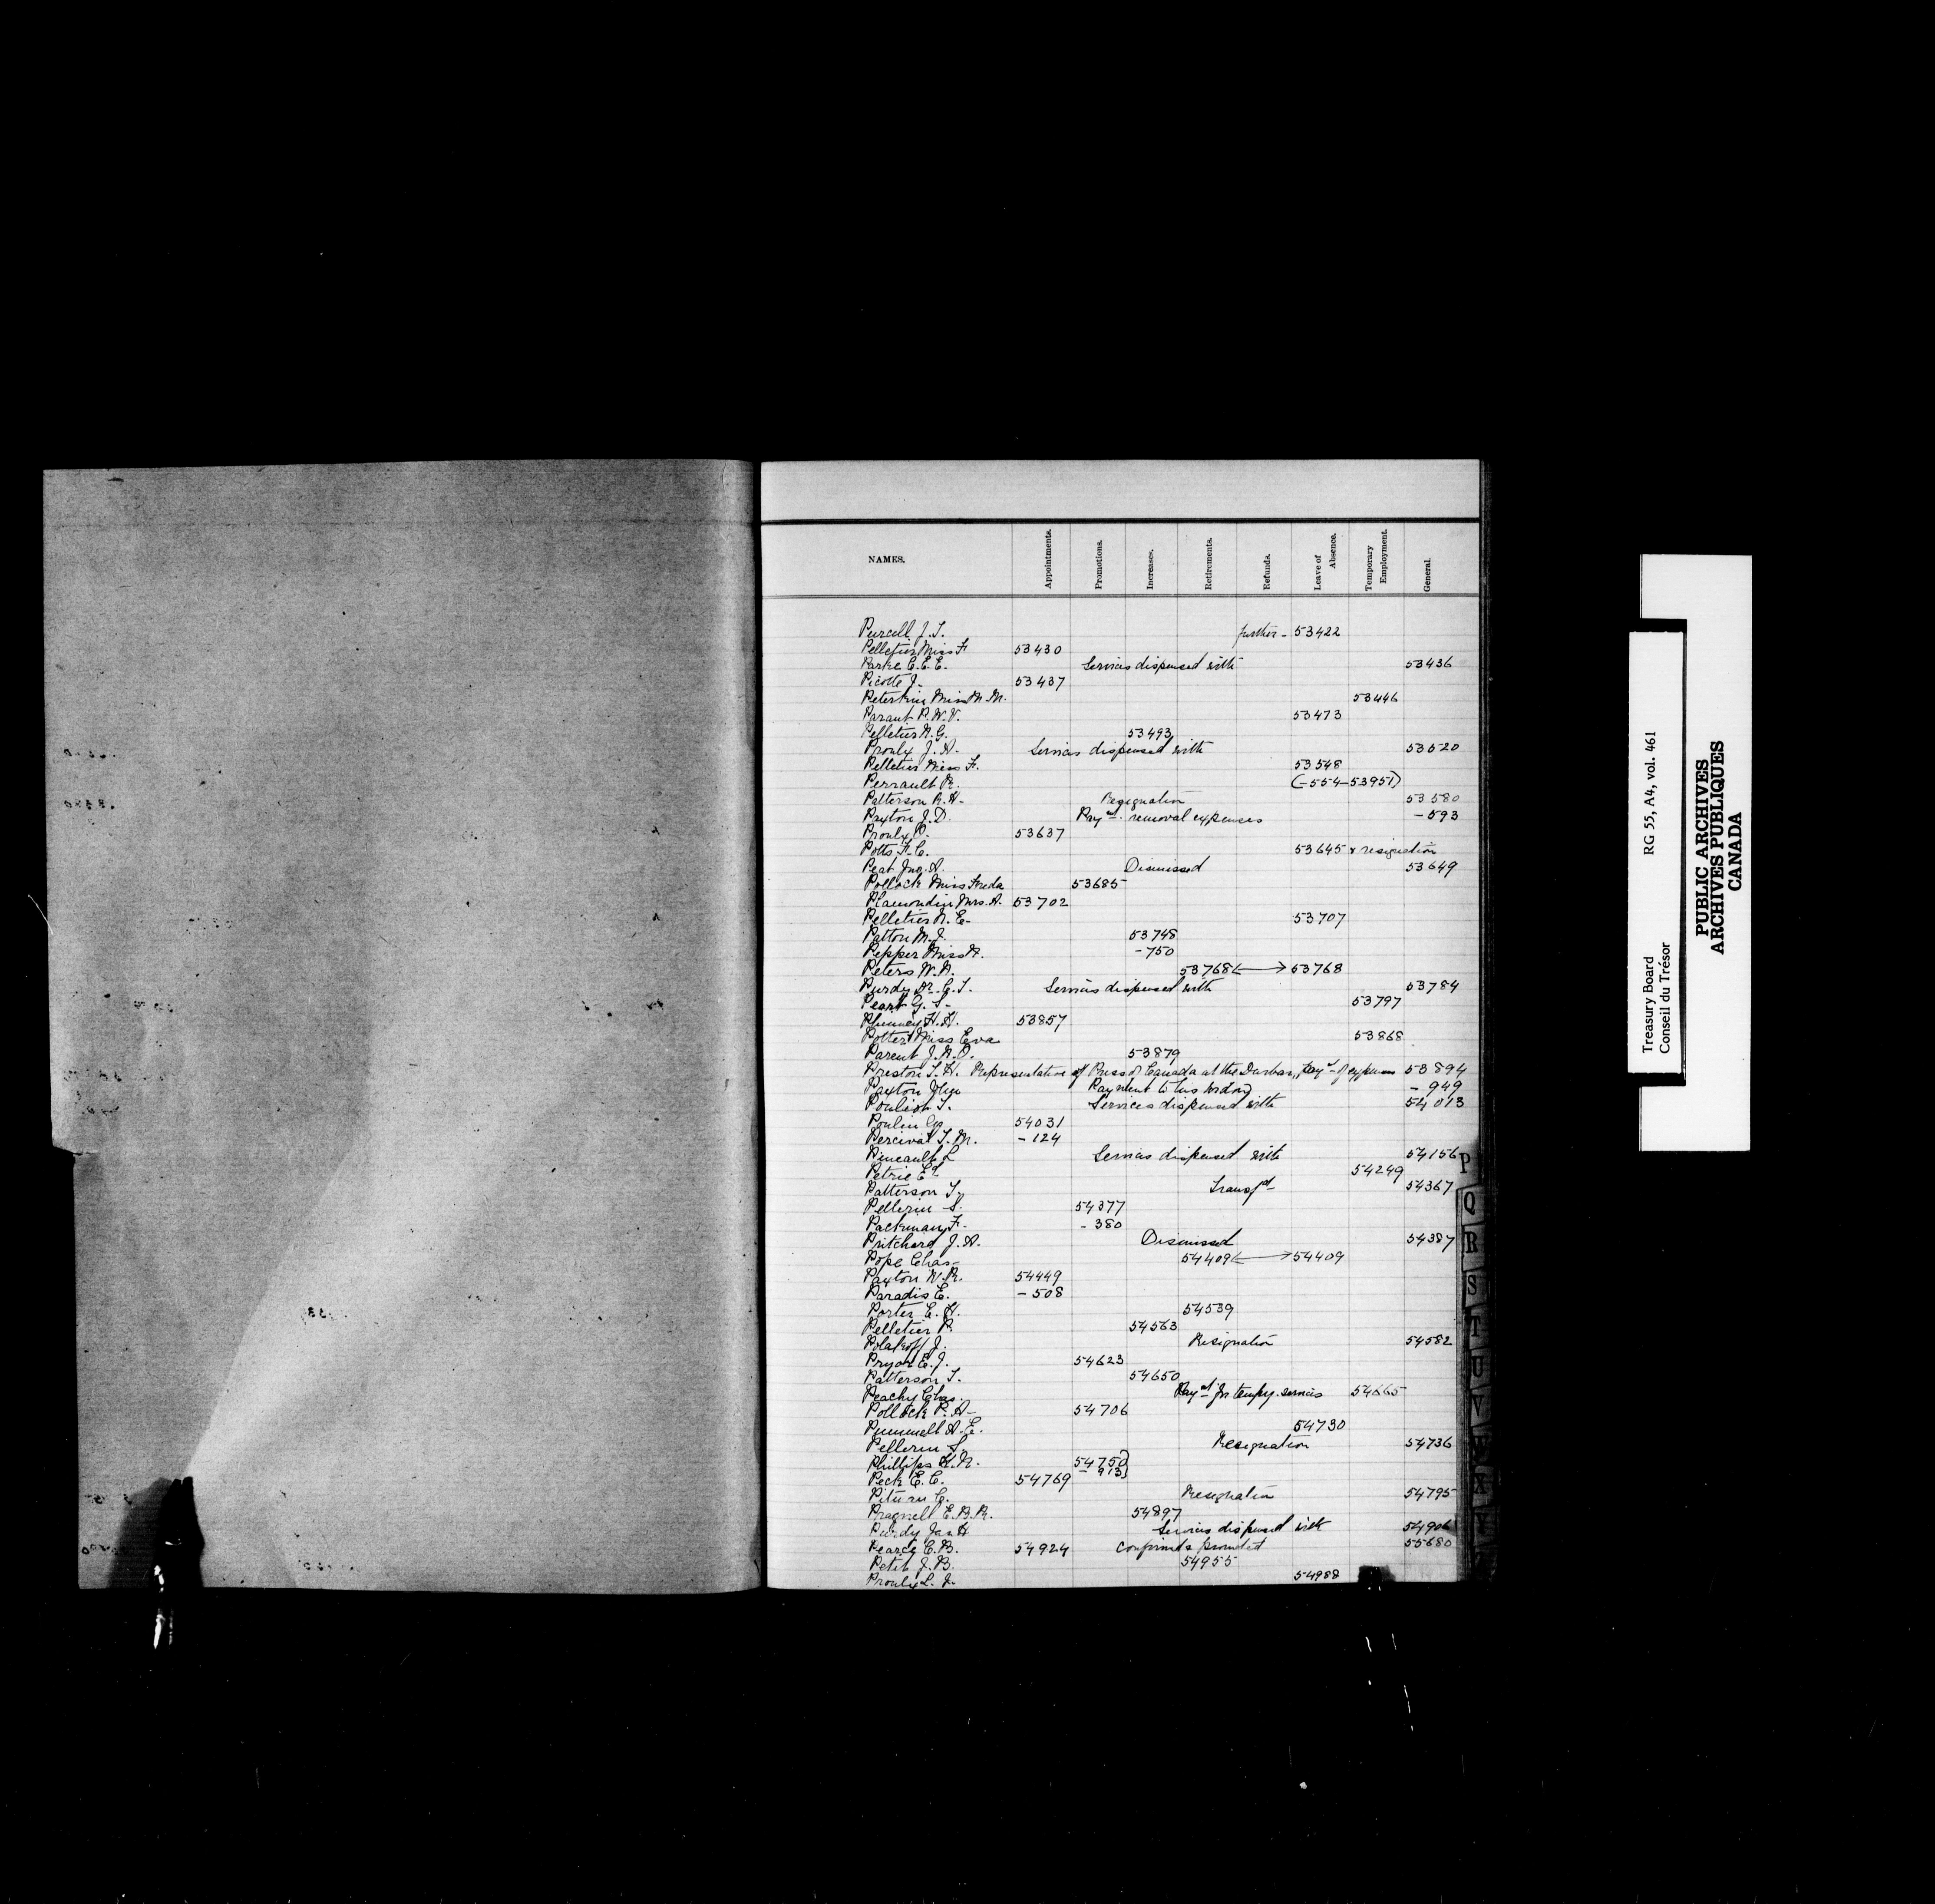 NAMES. Appointments. Promotions. Increases. Retirements. Refunds. Leave of Absence. Temporary Employment. General.
Purcell J. T. further - 53422
Pelletier Miss F. 53430
Parke C. E. E. Services dispensed with 53436
Picotte J. 53437
Peterkin Miss M. M. 53446
Parant P. W. V. 53473
Pelletier N. G. 53493
Proulx J. A. Services dispensed with 53520
Pelletier Miss F. 53548
Perrault R. (-554-53951)
Patterson R. H. Resignation 53580
Paxton J. D. Payt. removal expenses - 593
Proulx O. 53637
Potts F. C. 53645 & resignation
Peat Jno. A. Dismissed 53649
Pollock Miss Freda 53685
Plamondin Mrs. A. 53702
Pelletier N. E. 53707
Patton M. J. 53748
Pepper Miss A. - 750
Peters W. A. 53768 ← → 53768
Purdy Dr. C. T. Services dispensed with 53784
Peart G. S. 53797
Phinney H. H. 53857
Potter Miss Eva 53868
Parent J. N. O. 53879
Preston T. H. Representative of Press of Canada at the Durbar, Payt. of expenses 53894
Paxton Jno Payment to his widow - 949
Poulson T. Services dispensed with 54013
Poulin Geo 54031
Percival T. M. - 124
Pineault L Services dispensed with 54156
Petrie Ed 54249
Patterson T. Transfd 54367
Pellerin S. 54377
Packman F. - 380
Pritchard J. A. Dismissed 54387
Pope Chas 54409 ← → 54409
Paxton W. R. 54449
Paradis E. - 508
Porter E. H. 54539
Pelletier P. 54563
Polakoff J. Resignation 54582
Pryor E. J. 54623
Patterson T. 54650
Peachy Chas. Payt for tempy. services 54665
Pollock R. A. 54706
Pummell A. E. 54730
Pellerin S. Resignation 54736
Phillips H. N. 54750
- 913}
Peck E. C. 54769
Piturn C. Resignation 54795
Pragnell E. B. R. 54897
Purdy Jas H Services dispensed with 54906
Pearce C. B. 54924 confirmed & promoted 55680
Petit J. B. 54955
Proulx L. J. 54988
P
Q
R
S
T
U
V
W
X
Y
Treasury Board RG 55, A4, vol. 461
Conseil du Trésor
PUBLIC ARCHIVES
ARCHIVES PUBLIQUES
CANADA